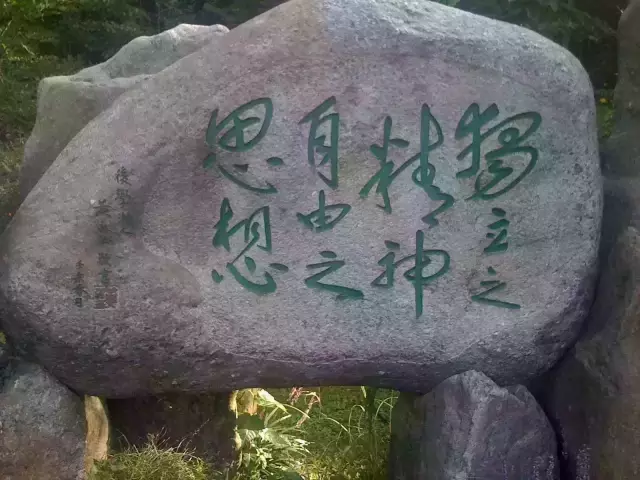 獨立之
精神
自由之
思想
後學